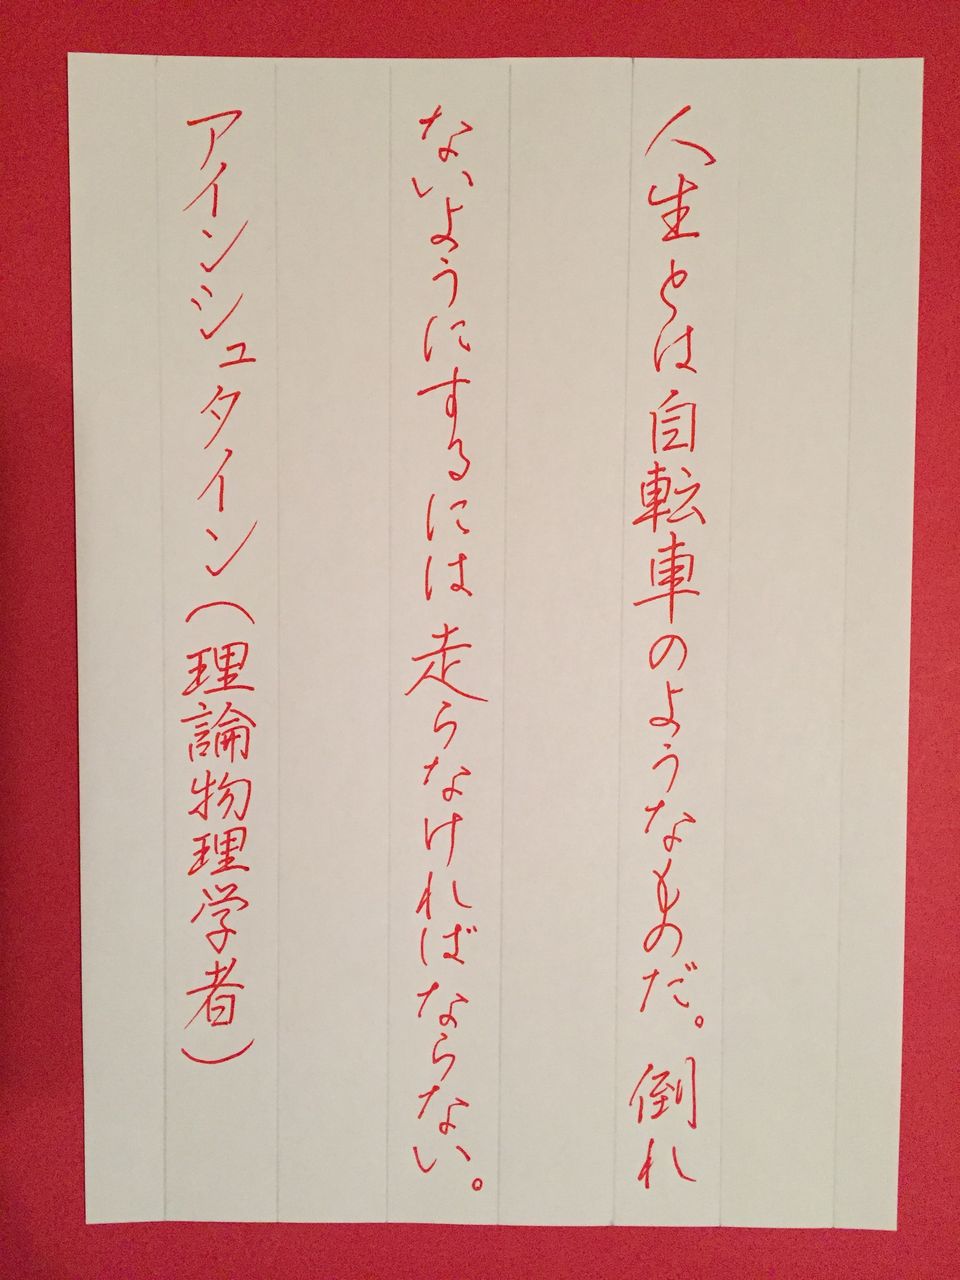 人生とは自転車のようなものだ。倒れ
ないようにするには走らなければならない。
アインシュタイン（理論物理学者）